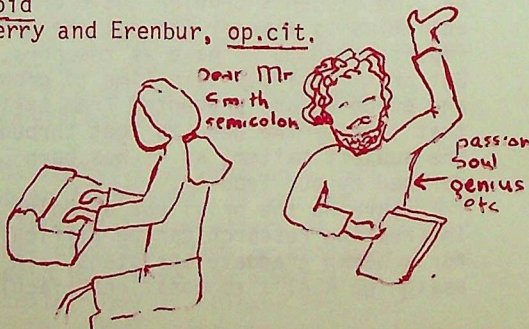 oid
erry and Erenbur, op.cit.
Dear Mr
Smith
semicolon
passion
soul
genius
etc